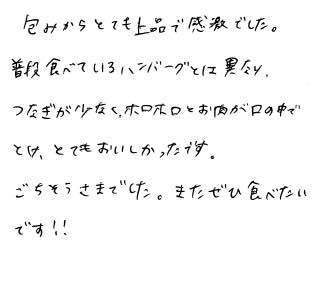 包みからとても上品で感激でした。
普段食べているハンバーグとは異なり、
つなぎが少なく、ホロホロとお肉が口の中で
とけ、とてもおいしかったです。
ごちそうさまでした。またぜひ食べたい
です!!